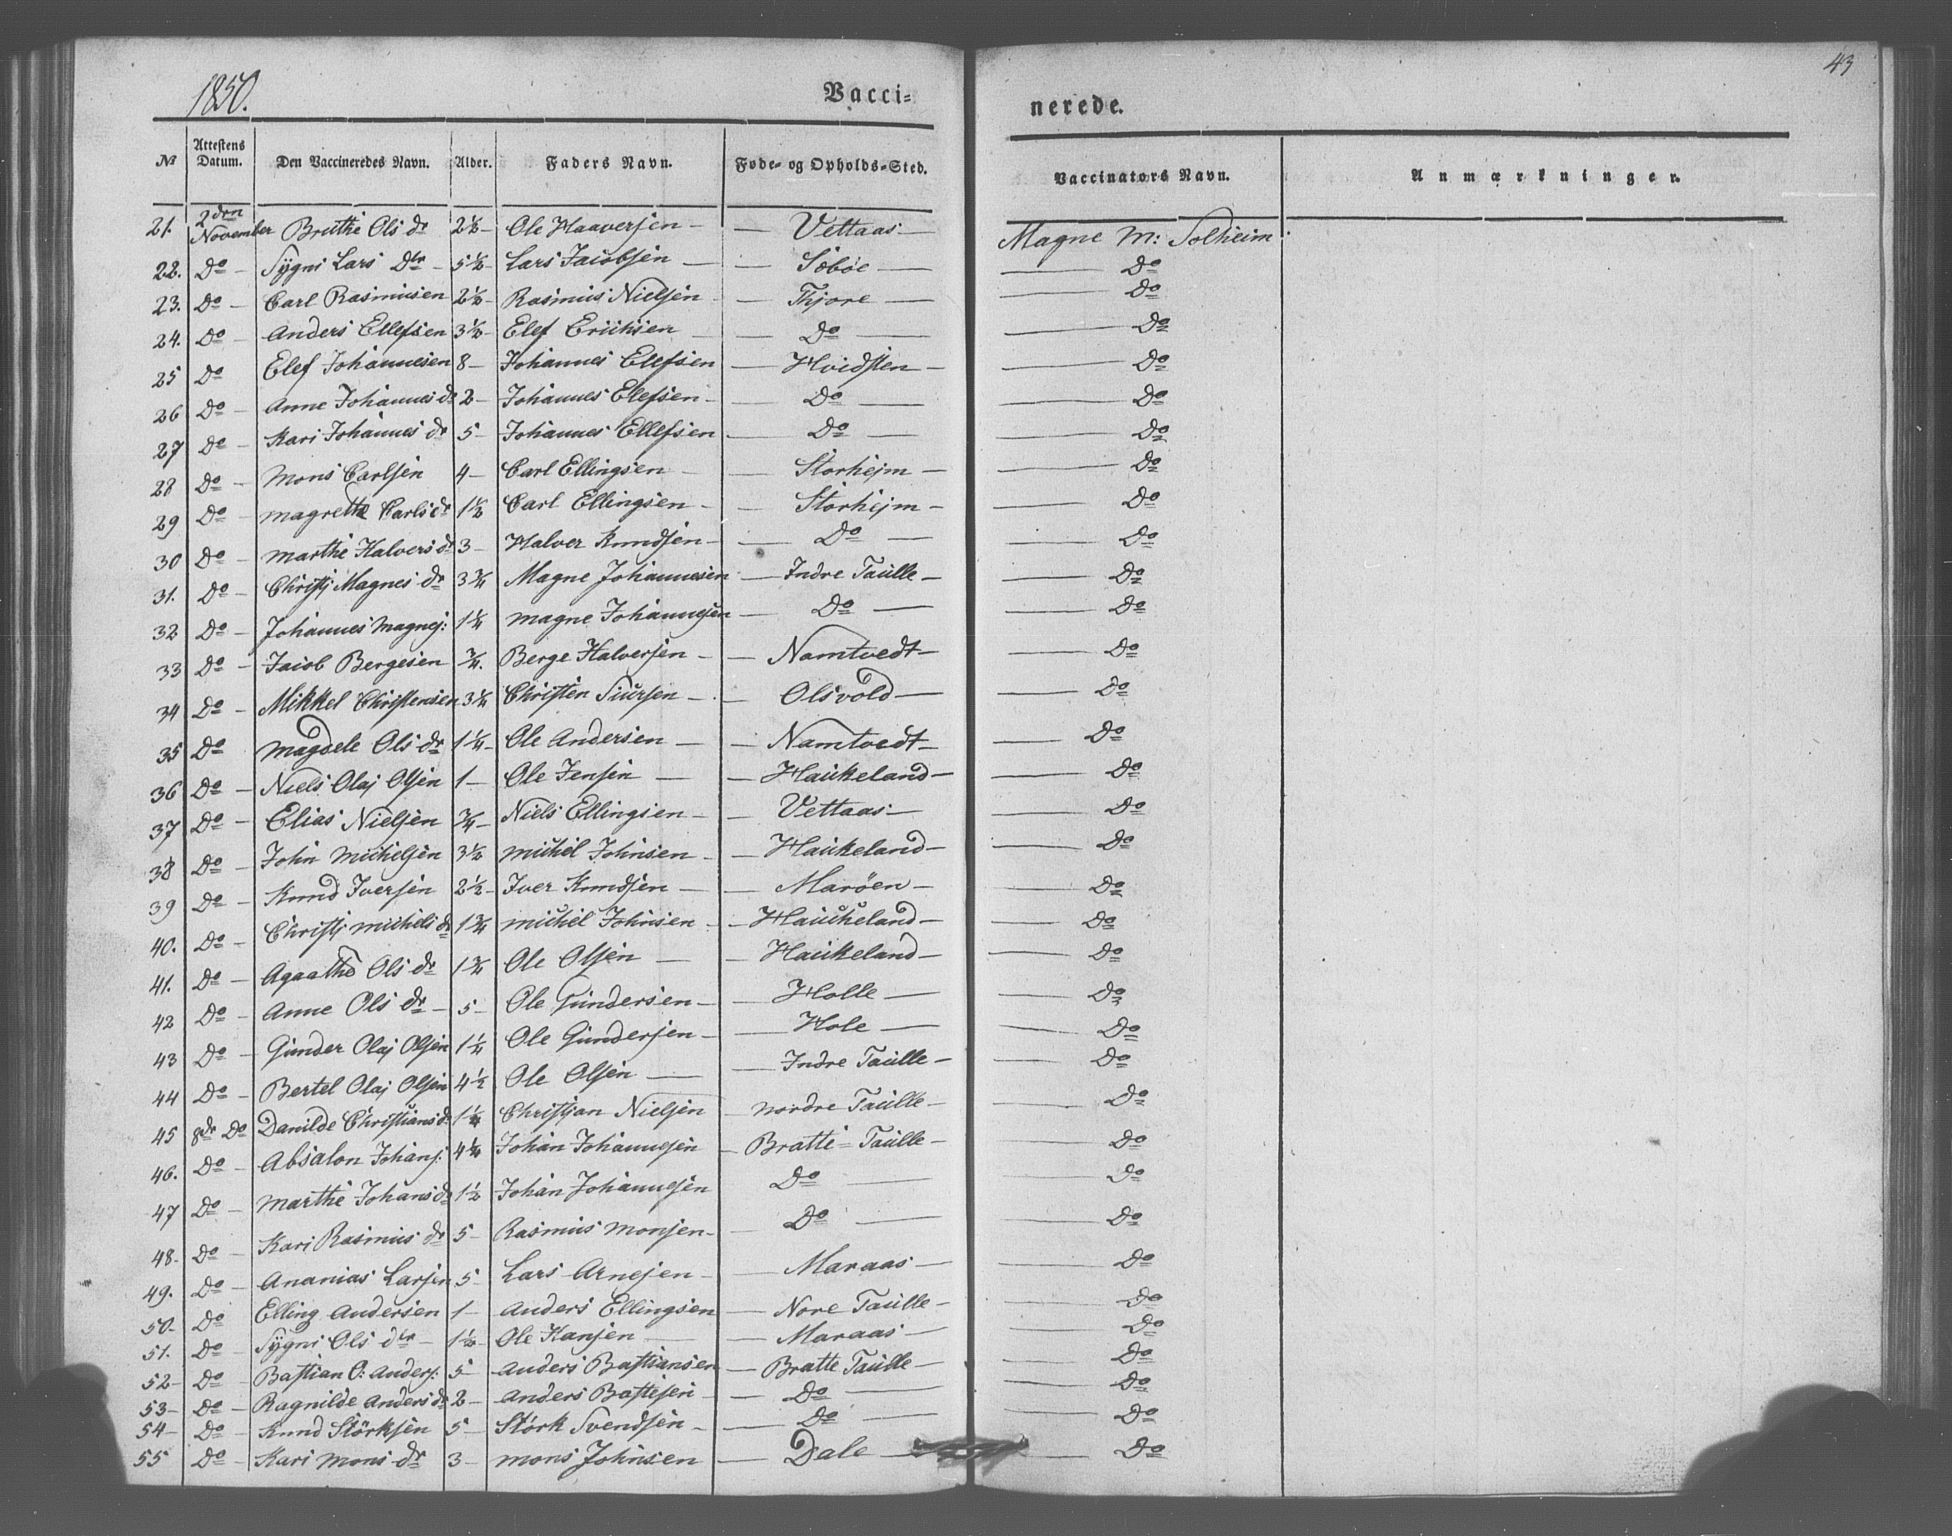 1850.
Vacci-
nerede.
43
№ Attestens Datum. Den Vaccineredes Navn. Alder. Faders Navn. Føde- og Opholds-Sted. Vaccinators Navn. Anmærkninger.
21. 2den November Brithe Ols dr 2½ – Ole Haaversen – — Vettaas — Magne M: Solheim.
22. Do – Sygni Lars Dtr – 5½ – Lars Jacobsen — — Sæbøe — — Do
23. Do – Carl Rasmusen 2½ – Rasmus Nielsen – — Thjore — — Do
24. Do – Anders Ellefsen 3½ – Elef Erichsen — — Do — — Do
25 Do Elef Johannesen 8 – Johannes Elefsen — Hvidsten – — Do
26 Do – Anne Johannes dr 2 – Johannes Elefsen – — Do — — Do
27 Do – Kari Johannes dr 5 – Johannes Ellefsen – — Do — — Do
28 Do – Mons Carlsen 4 – Carl Ellingsen – — Storhejm – — Do
29 Do – Magrethe Carls dr 1½ Carl Ellingsen – — Storhejm – — Do
30 Do – Marthe Halvers dr 3 – Halver Knudsen – — Do — — Do
31. Do – Christj Magnes dr 3¾ Magne Johannesen — Indre Taulle – — Do
32 Do – Johannes Magnes: 1¼ Magne Johannesen — Do — — Do
33 Do – Jacob Bergesen ¾. Berge Halversen – — Namtvedt – — Do
34 Do – Mikkel Christensen 3¼ Christen Siursen – — Olsvold — — Do
35 Do Magdele Ols dr 1¼ – Ole Andersen — — Namtvedt – — Do
36 Do – Niels Olaj Olsen 1 – Ole Jensen — — Haukeland – — Do
37 Do – Elias Nielsen ¾ – Niels Ellingsen – — Vettaas — — Do
38 Do – John Michelsen 3½ Michel Johnsen – — Haukeland – — Do
39 Do – Knud Iversen 2½ – Iver Knudsen — — Marøen – — Do
40. Do – Christj Michels dr 1¾ Michel Johnsen – — Haukeland – — Do
41. Do – Agaathe Ols dr 1¾ Ole Olsen — — Haukeland – — Do
42 Do – Anne Ols dr – 5 – Ole Gundersen – — Holle — — Do
43 Do – Gunder Olaj Olsen 1¼ Ole Gundersen – — Hole — — Do
44 Do – Bertel Olaj Olsen 4½ Ole Olsen — — Indre Taulle – — Do
45 8de Do Danilde Christians dr 1¼ Christjan Nielsen — Nordre Taulle – — Do
46. Do – Absalon Johans: 4¼ Johan Johannesen — Bratte Taulle – — Do
47 Do – Marthe Johans dr 1½ Johan Johannesen Do — — Do
48 – Do – Kari Rasmus dr 5 – Rasmus Monsen – — Do — — Do
49. Do – Ananias Larsen 5 – Lars Arnesen – — Maraas — — Do
50 – Do Elling Andersen 1 – Anders Ellingsen — Nore Taulle – — Do
51. Do – Sygni Ols dtr – 1½ – Ole Hansen — — Maraas — — Do
52 – Do – Bastian O: Anders: 5 – Anders Bastiansen — Bratte Taulle – — Do
53 – Do – Ragnilde Anders dr 2 – Anders Bastesen – — Do — — Do
54 – Do – Knud Størksen 5 – Størk Svendsen – — Do — — Do
55 Do – Kari Mons dr 3 – Mons Johnsen — Dale — — Do